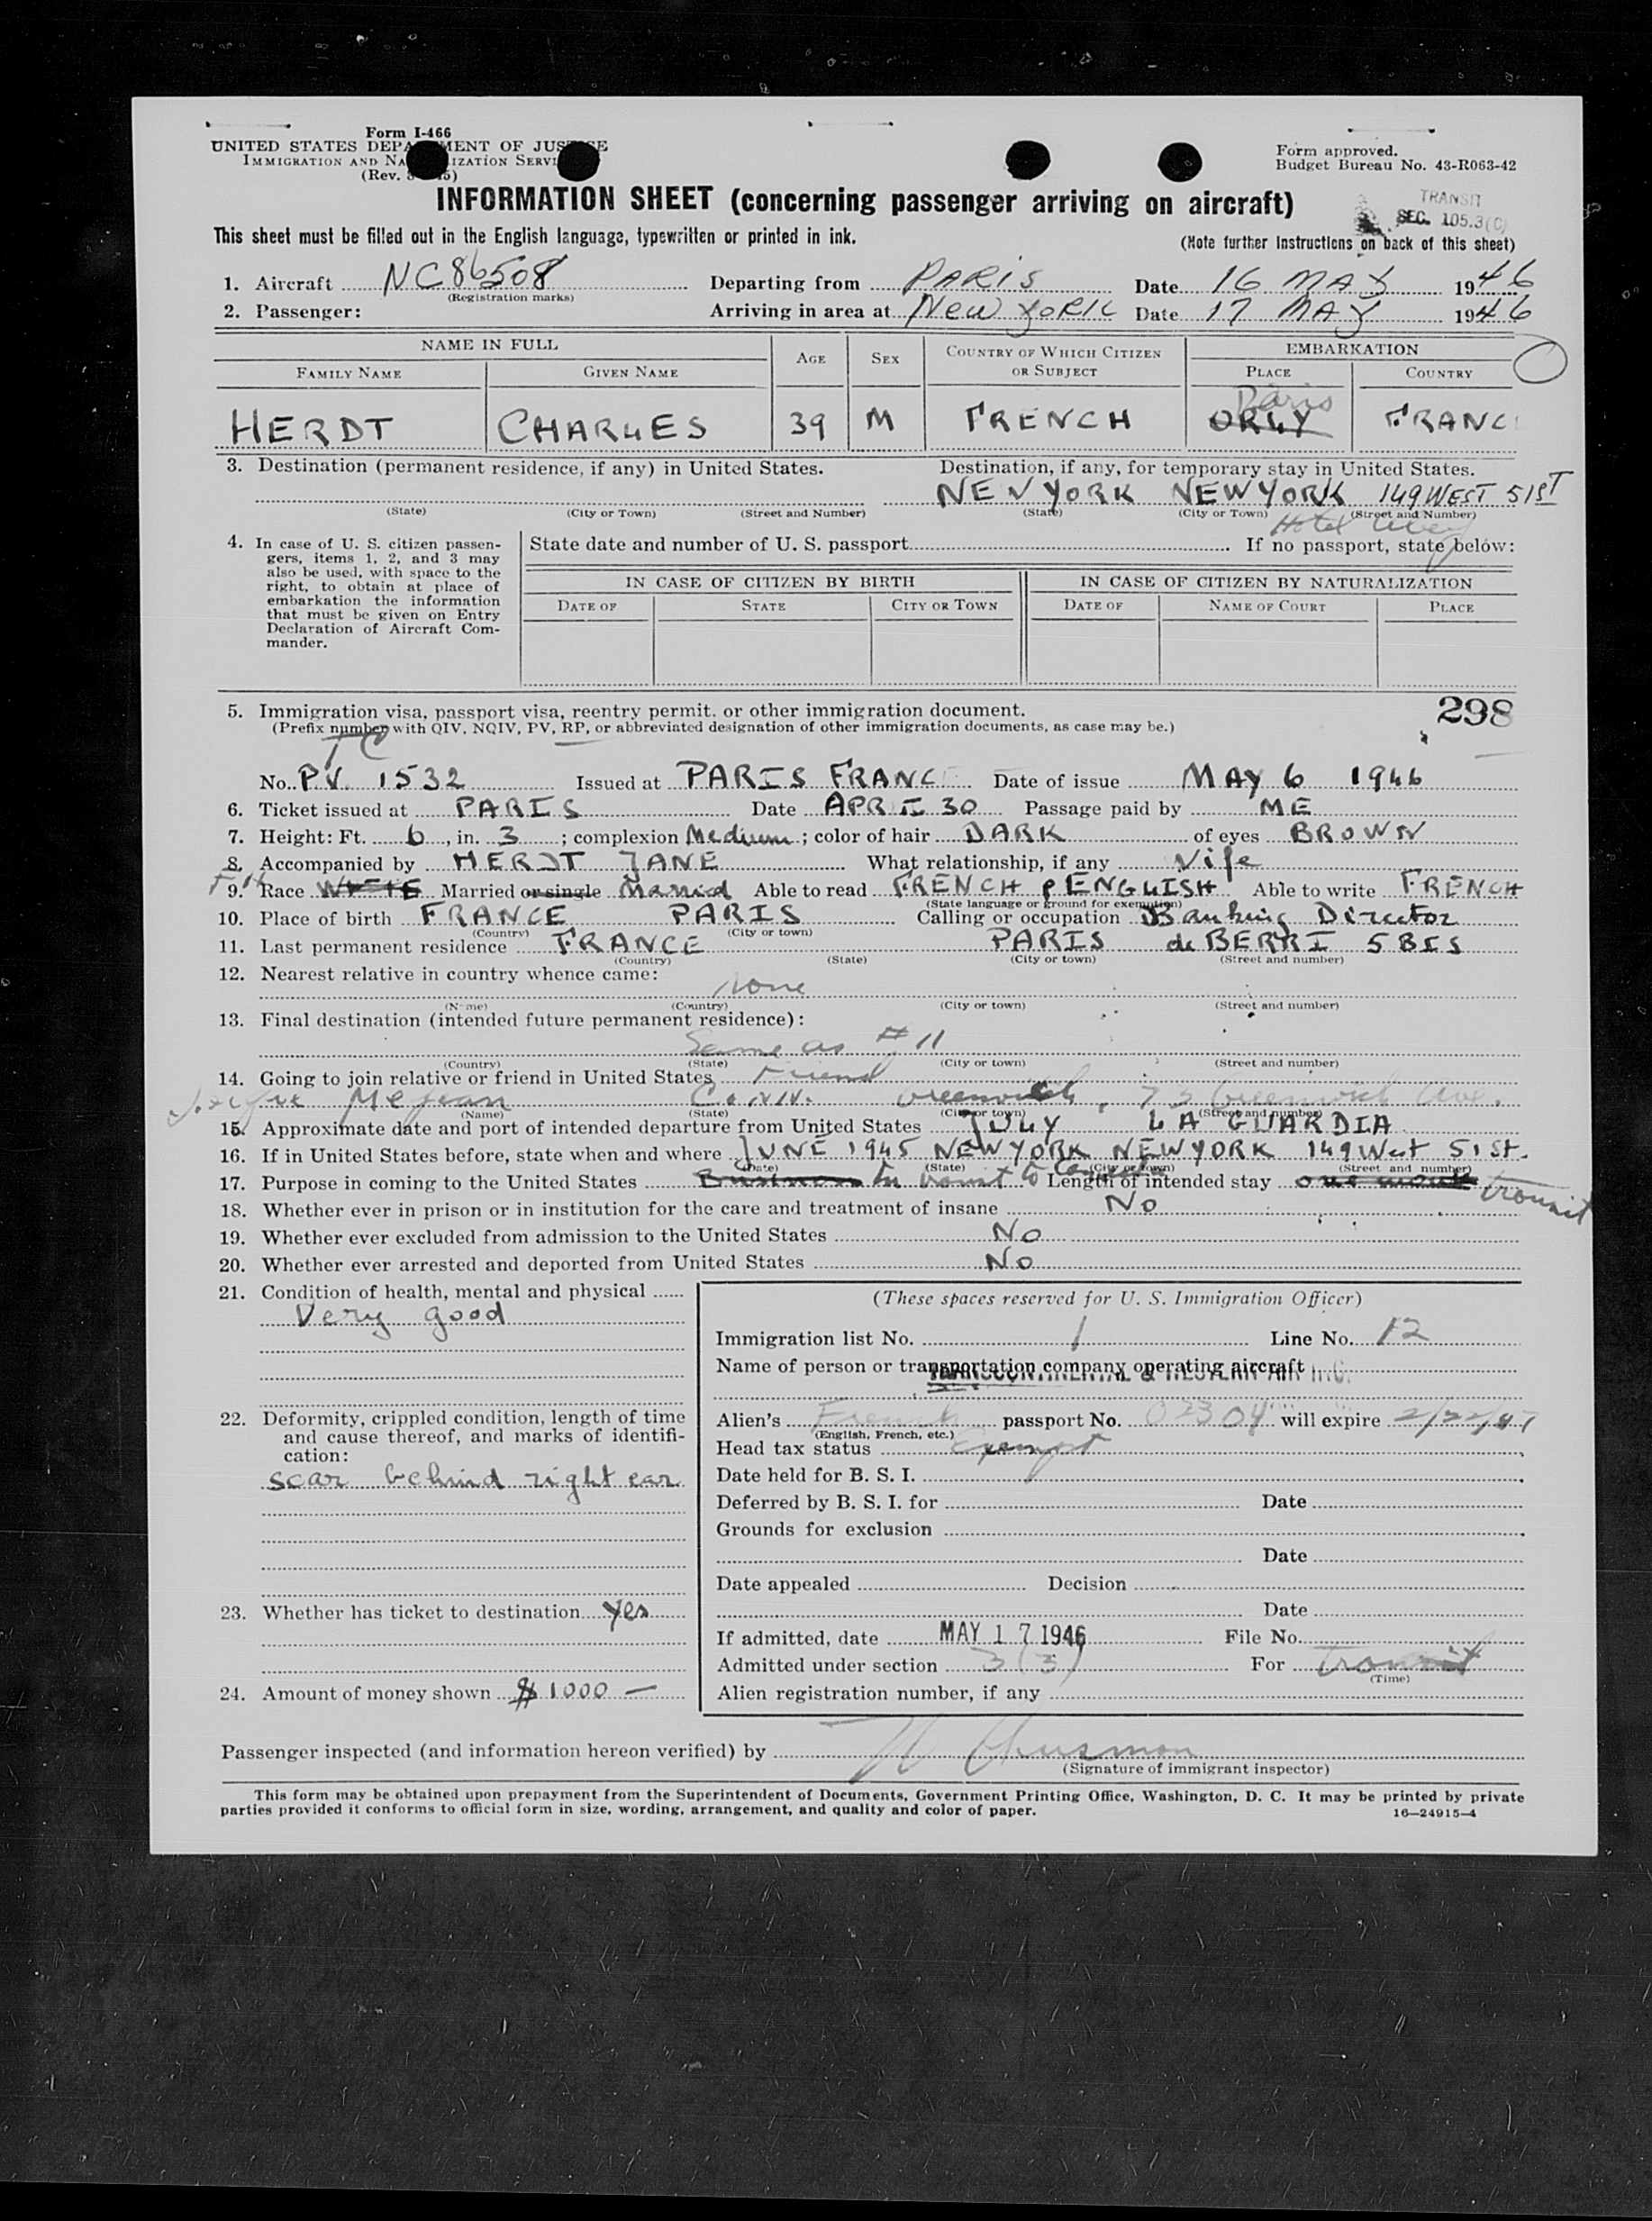 Form I-466
UNITED STATES DEPA MENT OF JUS E
IMMIGRATION AND NA IZATION SERVI
(Rev. 5)
Form approved.
Budget Bureau No. 43-R063-42
INFORMATION SHEET (concerning passenger arriving on aircraft)
TRANSIT
SEC. 105.3(C)
This sheet must be filled out in the English language, typewritten or printed in ink.
(Note further instructions on back of this sheet)
1. Aircraft NC86508 Departing from PARIS Date 16 MAY 1946
(Registration marks)
2. Passenger: Arriving in area at New YORK Date 17 MAY 1946
NAME IN FULL AGE SEX COUNTRY OF WHICH CITIZEN OR SUBJECT EMBARKATION
FAMILY NAME GIVEN NAME PLACE COUNTRY
Paris
HERDT CHARLES 39 M FRENCH ORLY FRANC
3. Destination (permanent residence, if any) in United States. Destination, if any, for temporary stay in United States.
NEW YORK NEW YORK 149 WEST 51ST
(State) (City or Town) (Street and Number) (State) (City or Town) (Street and Number)
Hotel
4. In case of U. S. citizen passengers, items 1, 2, and 3 may also be used, with space to the right, to obtain at place of embarkation the information that must be given on Entry Declaration of Aircraft Commander.
State date and number of U. S. passport If no passport, state below:
IN CASE OF CITIZEN BY BIRTH IN CASE OF CITIZEN BY NATURALIZATION
DATE OF STATE CITY OR TOWN DATE OF NAME OF COURT PLACE
298
5. Immigration visa, passport visa, reentry permit, or other immigration document.
(Prefix number with QIV, NQIV, PV, RP, or abbreviated designation of other immigration documents, as case may be.)
TC
No. P.V. 1532 Issued at PARIS FRANC Date of issue MAY 6 1946
6. Ticket issued at PARIS Date APRIL 30 Passage paid by ME
7. Height: Ft. 6, in. 3; complexion Medium; color of hair DARK of eyes BROWN
8. Accompanied by HERDT JANE What relationship, if any Wife
9. Race WHITE Married or single Married Able to read FRENCH & ENGLISH Able to write FRENCH
(State language or ground for exemption)
10. Place of birth FRANCE PARIS Calling or occupation Banking Director
(Country) (City or town)
11. Last permanent residence FRANCE PARIS de BERRI 5 BIS
(Country) (State) (City or town) (Street and number)
12. Nearest relative in country whence came:
none
(Name) (Country) (City or town) (Street and number)
13. Final destination (intended future permanent residence):
Same as #11
(Country) (State) (City or town) (Street and number)
14. Going to join relative or friend in United States Friend
Mejean Conn. Greenwich, 73 Greenwich Ave.
(Name) (State) (City or town) (Street and number)
15. Approximate date and port of intended departure from United States JULY LA GUARDIA
16. If in United States before, state when and where JUNE 1945 NEW YORK NEW YORK 149 West 51 St.
(Date) (State) (City or town) (Street and number)
17. Purpose in coming to the United States Business In transit to Canada Length of intended stay one month transit
18. Whether ever in prison or in institution for the care and treatment of insane No
19. Whether ever excluded from admission to the United States No
20. Whether ever arrested and deported from United States No
21. Condition of health, mental and physical
Very good
22. Deformity, crippled condition, length of time and cause thereof, and marks of identification:
scar behind right ear
23. Whether has ticket to destination yes
24. Amount of money shown $ 1000 —
(These spaces reserved for U. S. Immigration Officer)
Immigration list No. 1 Line No. 12
Name of person or transportation company operating aircraft
TRANSCONTINENTAL & WESTERN AIR INC.
Alien's French passport No. 02304 will expire 2/22/47
(English, French, etc.)
Head tax status Exempt
Date held for B. S. I.
Deferred by B. S. I. for Date
Grounds for exclusion
Date
Date appealed Decision
Date
If admitted, date MAY 17 1946 File No.
Admitted under section 3(3) For transit
(Time)
Alien registration number, if any
Passenger inspected (and information hereon verified) by
(Signature of immigrant inspector)
This form may be obtained upon prepayment from the Superintendent of Documents, Government Printing Office, Washington, D. C. It may be printed by private
parties provided it conforms to official form in size, wording, arrangement, and quality and color of paper.
16—24915-4